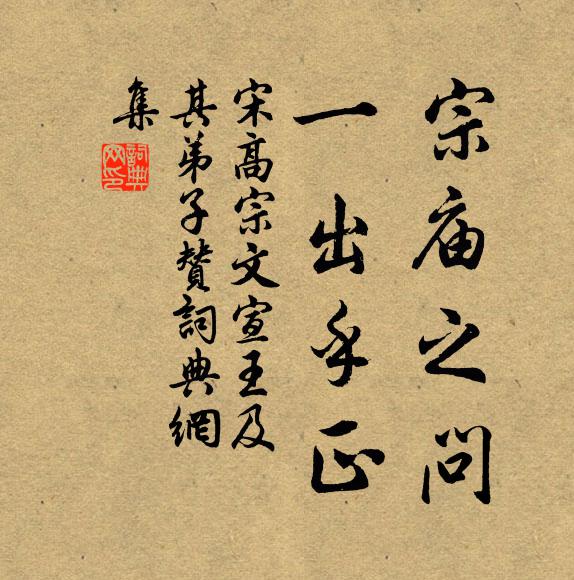 宗庙之问
一出乎正
宋高宗文宣王及
其弟子赞詞典網
集
詞典
网印